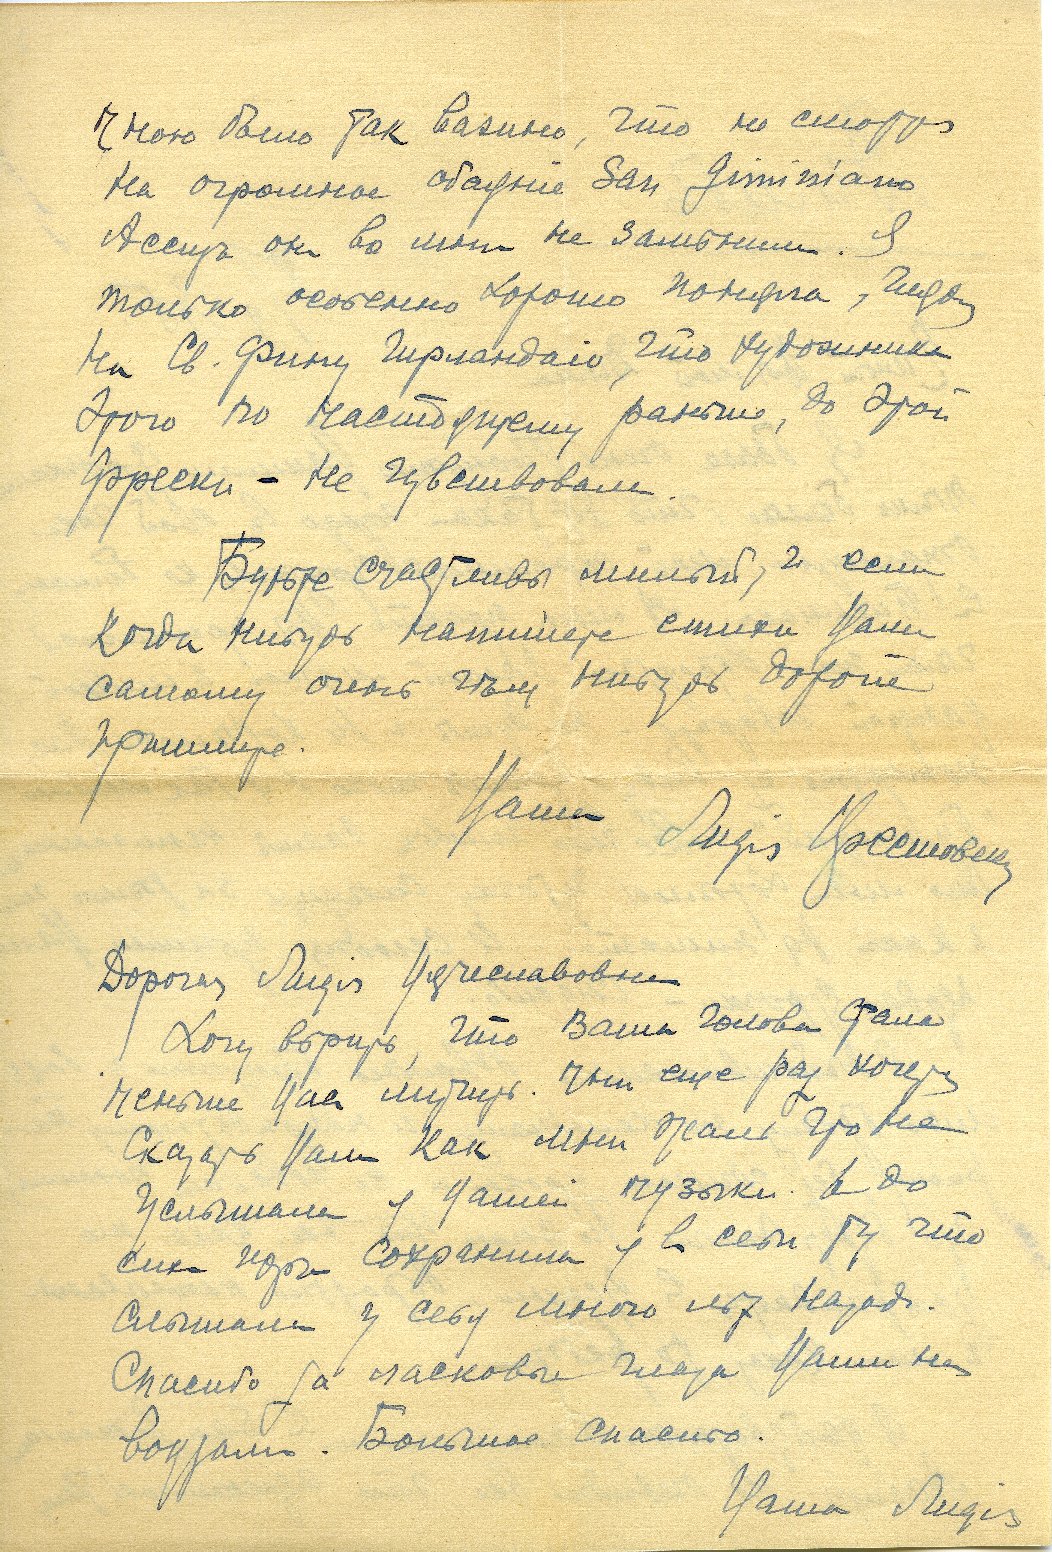 мною было так важно, что не смотря
на огромное обаянiе San Giminiano
Ассизъ они во мнѣ не замѣнили. Я
только особенно хорошо поняла, глядя
на Св. Фину Гирландаiо, что художника
этого по настоящему раньше, до этой
фрески - не чувствовала.
Будьте счастливы милый, и если
когда нибудь напишете стихи Вам
самому очень чѣм нибудь дорогiе
пришлите.
Ваша Лидiя
Дорогая Лидiя Вячеславовна
Хочу вѣрить, что Ваша голова стала
меньше Вас мучить. Мнѣ еще раз хочется
сказать Вам как мнѣ жаль что не
услышала я Вашей музыки. А до
сих пор сохранила я в себѣ ту что
слышала у себя много лѣт назад.
Спасибо за ласковые глаза Ваши на
вокзалѣ. Большое спасибо.
Ваша Лидiя